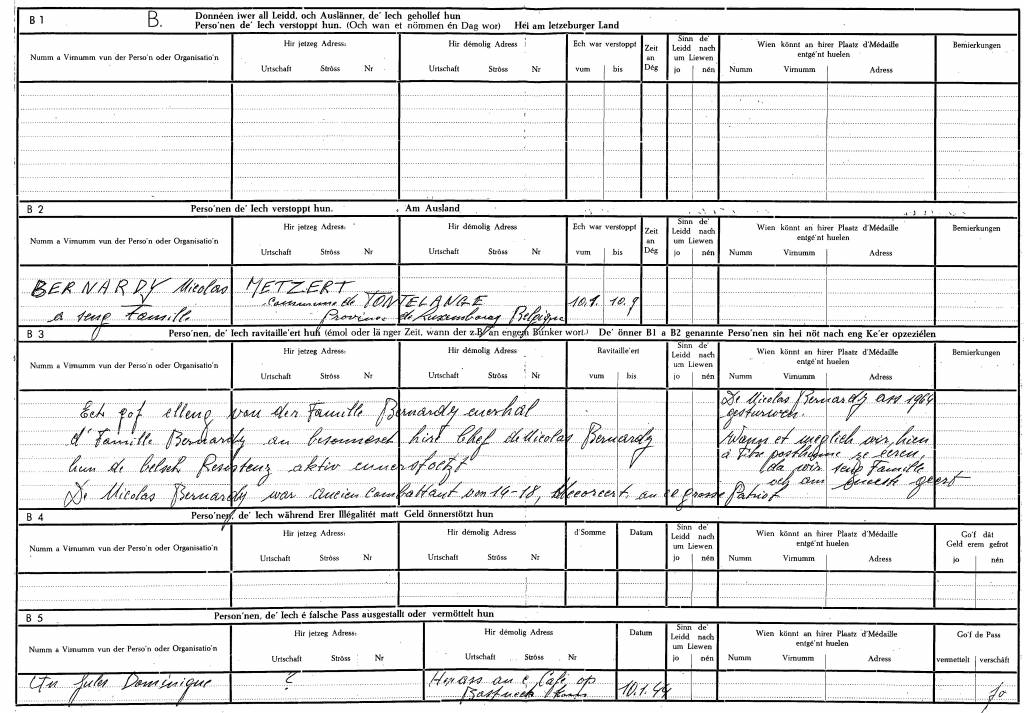 B 1 B. Donnéen iwer all Leidd, och Auslänner, de' Iech gehollef hun
Perso'nen de' Iech verstoppt hun. (Och wan et nömmen én Dag wor) Hei am letzeburger Land
Numm a Virnumm vun der Perso'n oder Organisatio'n
Hir jetzeg Adress:
Urtschaft Ströss Nr
Hir démolig Adress
Urtschaft Ströss Nr
Ech war verstoppt
vum bis
Zeit
an
Dég
Sinn de'
Leidd nach
um Liewen
jo nén
Wien könnt an hirer Plaatz d'Médaille
entgé'nt huelen
Numm Virnumm Adress
Bemierkungen
B 2 Perso'nen de' Iech verstoppt hun. Am Ausland
Numm a Virnumm vun der Perso'n oder Organisatio'n
Hir jetzeg Adress:
Urtschaft Ströss Nr
Hir démolig Adress
Urtschaft Ströss Nr
Ech war verstoppt
vum bis
Zeit
an
Dég
Sinn de'
Leidd nach
um Liewen
jo nén
Wien könnt an hirer Plaatz d'Médaille
entgé'nt huelen
Numm Virnumm Adress
Bemierkungen
BERNARDY Nicolas METZERT
commune de TONTELANGE 10.1. 10.9
a seng Famille Province de Luxembourg Belgique
B 3 Perso'nen, de' Iech ravitaille'ert hun (émol oder lä nger Zeit, wann der z.B. an engem Bunker wort.) De' önner B1 a B2 genannte Perso'nen sin hei nöt nach eng Ke'er opzeziélen
Numm a Virnumm vun der Perso'n oder Organisatio'n
Hir jetzeg Adress:
Urtschaft Ströss Nr
Hir démolig Adress
Urtschaft Ströss Nr
Ravitaille'ert
vum bis
Sinn de'
Leidd nach
um Liewen
jo nén
Wien könnt an hirer Plaatz d'Médaille
entgé'nt huelen
Numm Virnumm Adress
Bemierkungen
Ech gof elleng vun der Famille Bernardy
d'Famille Bernardy an besonnesch hire Chef de Nicolas Bernardy
hun de belsch Resistenz aktiv ennerstoetzt
De Nicolas Bernardy war ancien combattant von 14-18, decoreert, an e grosse Patriot
De Nicolas Bernardy ass 1964
gesturwen.
Wann et meglich wir, hien
à titre posthume ze eeren,
da wir seng Famille
och am geeert
B 4 Perso'nen, de' Iech während Erer Illégalitét matt Geld önnerstötzt hun
Numm a Virnumm vun der Perso'n oder Organisatio'n
Hir jetzeg Adress:
Urtschaft Ströss Nr
Hir démolig Adress
Urtschaft Ströss Nr
d'Somme
Datum
Sinn de'
Leidd nach
um Liewen
jo nén
Wien könnt an hirer Plaatz d'Médaille
entgé'nt huelen
Numm Virnumm Adress
Go'f dât
Geld erem gefrot
jo nén
B 5 Person'nen, de' Iech é falsche Pass ausgestallt oder vermöttelt hun
Numm a Virnumm vun der Perso'n oder Organisatio'n
Hir jetzeg Adress:
Urtschaft Ströss Nr
Hir démolig Adress
Urtschaft Ströss Nr
Datum
Sinn de'
Leidd nach
um Liewen
jo nén
Wien könnt an hirer Plaatz d'Médaille
entgé'nt huelen
Numm Virnumm Adress
Go'f de Pass
vermettelt verschâft
Jules Dominique ? an e Café op
10.1.44 jo